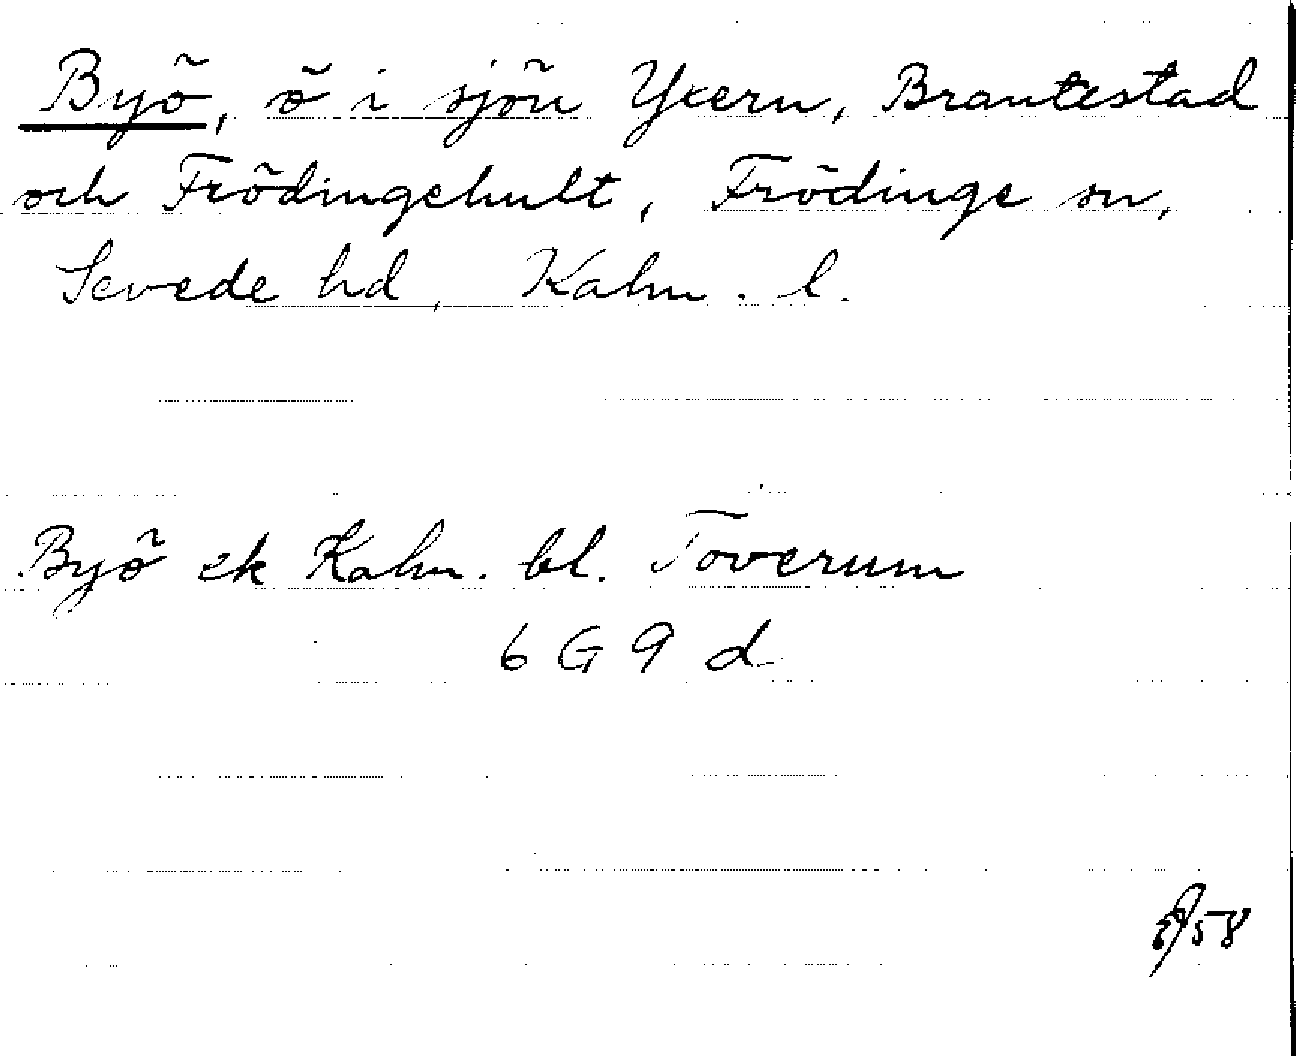 Byö, ö i sjön Yxern, Brantestad
och Frödingehult, Frödinge sn,
Sevede hd, Kalm. l.
Byö ek Kalm. bl. Toverum
6 G 9 d
58